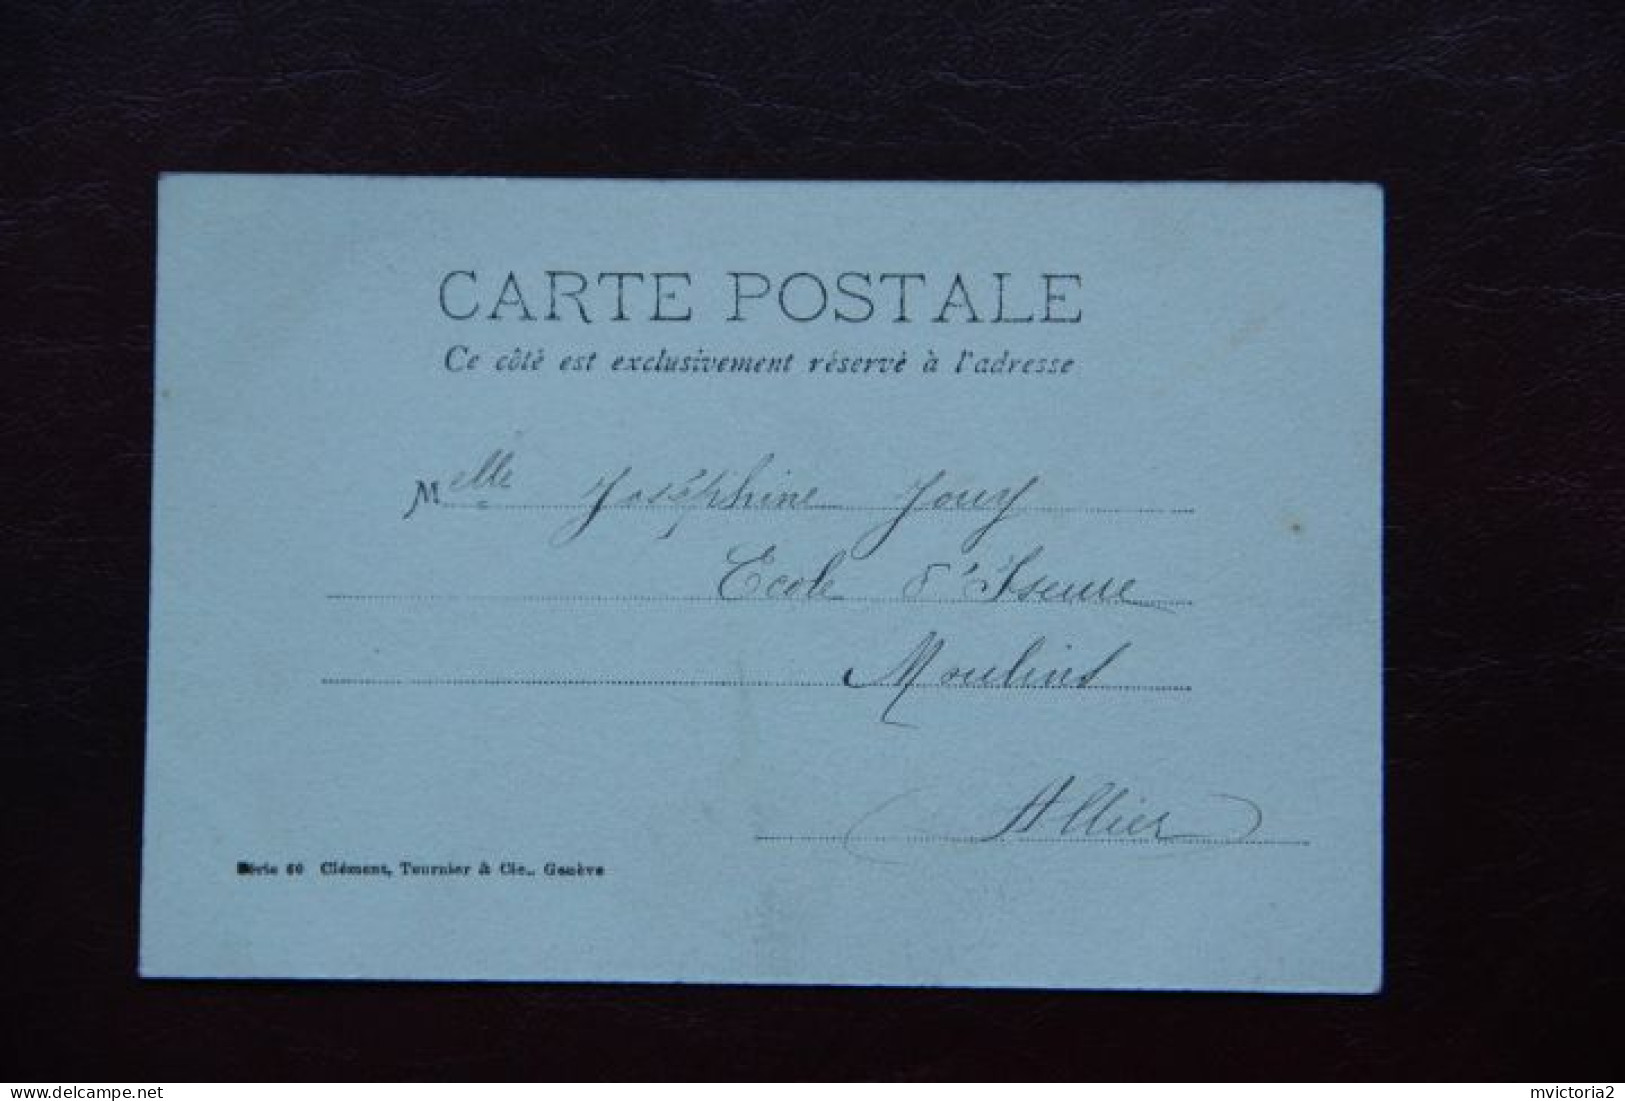 CARTE POSTALE
Ce côté est exclusivement réservé à l'adresse
Melle Joséphine Jouy
Ecole d'Iseure
Moulins
(Allier)
Série 60 Clément, Tournier & Cie., Genève
delcampe.net
mvictoria2